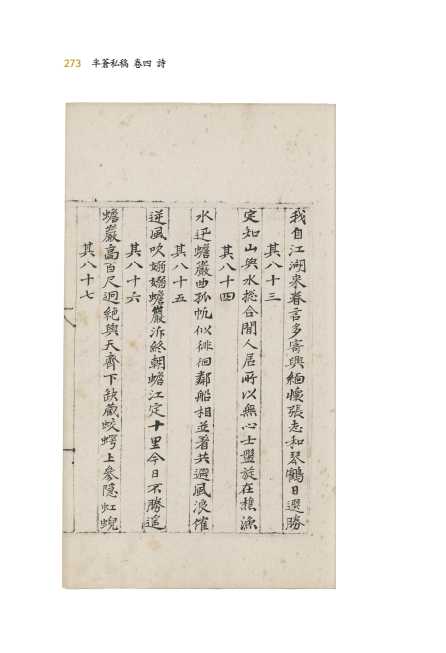 273 半蒼私稿 卷四 詩
我自江湖來眷言多寄興緬懷張志和琴鶴日選勝
其八十三
定知山與水總合閒人居所以無心士盤旋在樵漁
其八十四
水迅蟾巖曲孤帆似徘徊鄰船相並著共避風浪催
其八十五
逆風吹嫋嫋蟾巖泝終朝蟾江定十里今日不勝遙
其八十六
蟾巖高百尺迥絕與天齊下缺藏蛟上參隱虹蜺
其八十七